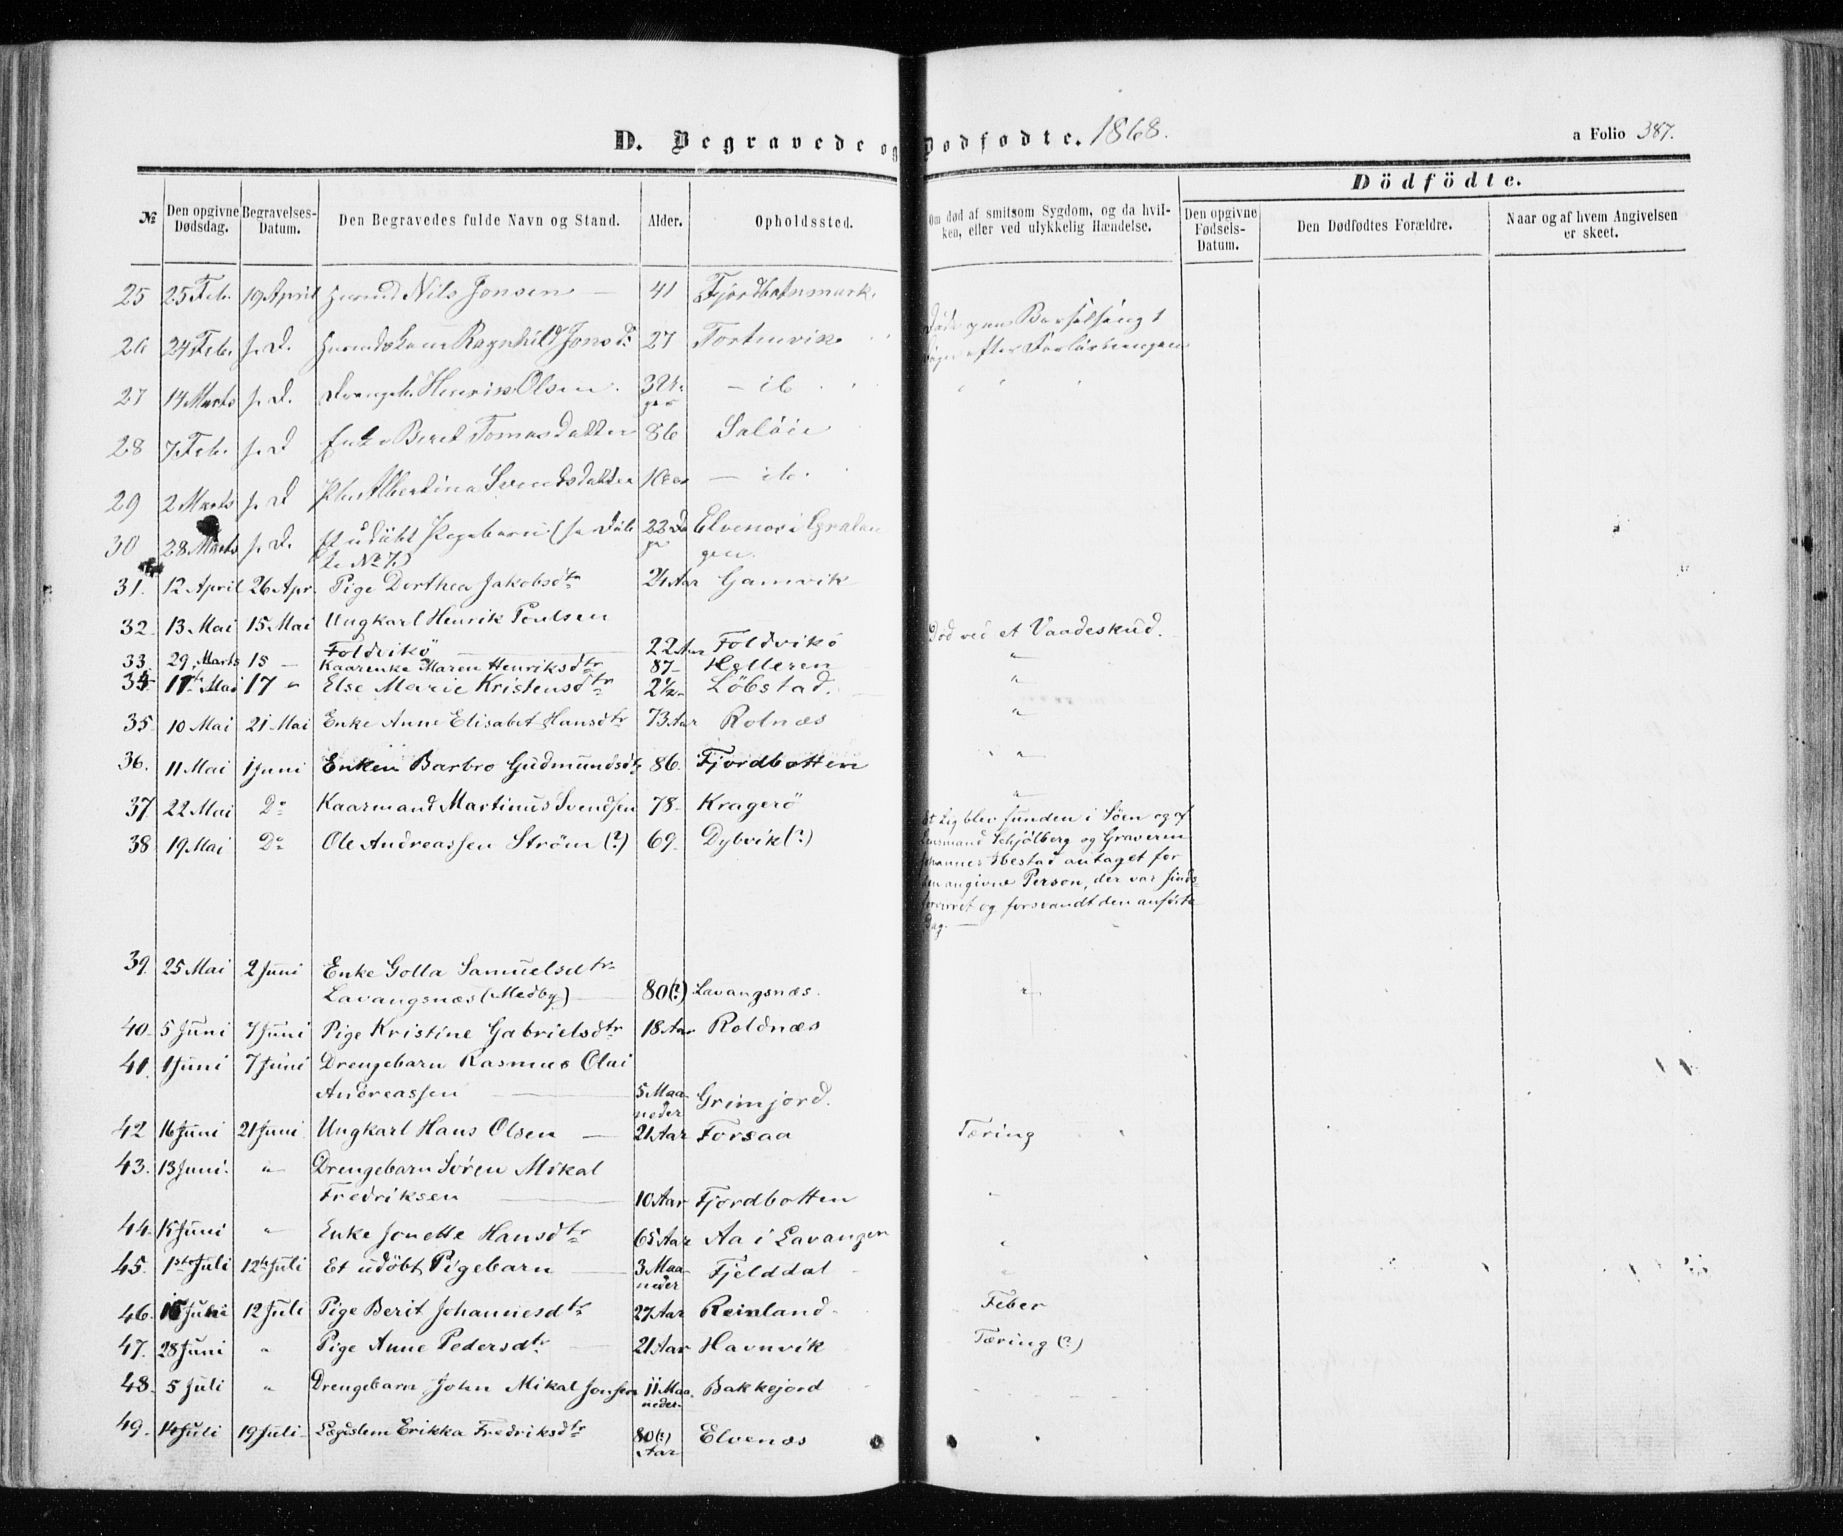 D. Begravede og Dødfødte. 1868.
a Folio 387.
Dödfödte.
№ Den opgivne Dødsdag. Begravelses-Datum. Den Begravedes fulde Navn og Stand. Alder. Opholdssted. Om død af smitsom Sygdom, og da hvilken, eller ved ulykkelig Hændelse. Den opgivne Fødsels-Datum. Den Dødfødtes Forældre. Naar og af hvem Angivelsen er skeet.
25 25 Feb. 19 April Nils Jonsen 41
26 24 Feb. s. D. Ragnhild Jonsd. 27
efter
27 14 Marts s. D. Olsen - ib
28 7 Feb. s. D Enke Beret Tomasdatter 86 Salöie
29 2 Marts s. D - ib.
30 28 Marts s. D. Et udöbt Pigebarn 22 Da
ge gen.
31. 12 April 26 Apr. Pige Dorthea Jakobsdtr 21 Aar Gamvik
32. 13 Mai 15 Mai Ungkarl Henrik Poulsen
Foldvikö 22 Aar Foldvikö Död ved et Vaadeskud.
33. 29. Marts 15 - Kaarenke Maren Henriksdtr 87- Helleren "
34. 17te Mai 17 " Else Marie Kristensdtr 2½- Löbstad. "
35. 10 Mai 21 Mai Enke Anne Elisabet Hansdtr 73 Aar Rolnæs "
36. 11 Mai 1 Juni Enken Barbro Gudmundsdtr 86. Fjordbotten "
37 22 Mai Do Kaarmand Martinus Svendsen 78- Kragerö "
38 19 Mai Do Ole Andreassen Ström (?) 69. Dybvik (?) Et Lig blev funden i Söen og af
Lensmand Schjölberg og Graveren
Johannes Ibestad antaget for
den angivne Person, der var sinds-
forvirret og forsvandt den anförte
Dag. -
39. 25 Mai 2 Juni Enke Golla Samuelsdtr
Lavangsnæs (Medby) 80(?) Lavangsnæs. "
40. 5 Juni 7 Juni Pige Kristine Gabrielsdtr 18 Aar Roldnæs
41. 1 Juni 7 Juni Drengebarn Rasmus Olai
Andreassen 5 Maa-
neder Grimjord.
42 16 Juni 21 Juni Ungkarl Hans Olsen 21 Aar Forsaa Tæring
43. 13 Juni. " Drengebarn Sören Mikal
Fredriksen 10 Aar Fjordbotten "
44. 15 Juni " Enke Jonette Hansdtr 65 Aar Aa i Lavangen "
45. 1ste Juli 12te Juli Et udöbt Pigebarn 3 Maa-
neder Fjelddal "
46. Juni 12 Juli Pige Berit Johannesdtr 27 Aar Reinland Feber
47. 28 Juni " Pige Anne Pedersdtr 21 Aar Havnvik Tæring (?)
48. 5 Juli " Drengebarn John Mikal Jonsen 11 Maa-
neder Bakkejord
49. 14 Juli 19 Juli Lægdslem Erikka Fredriksdtr 80(?)
Aar Elvenæs